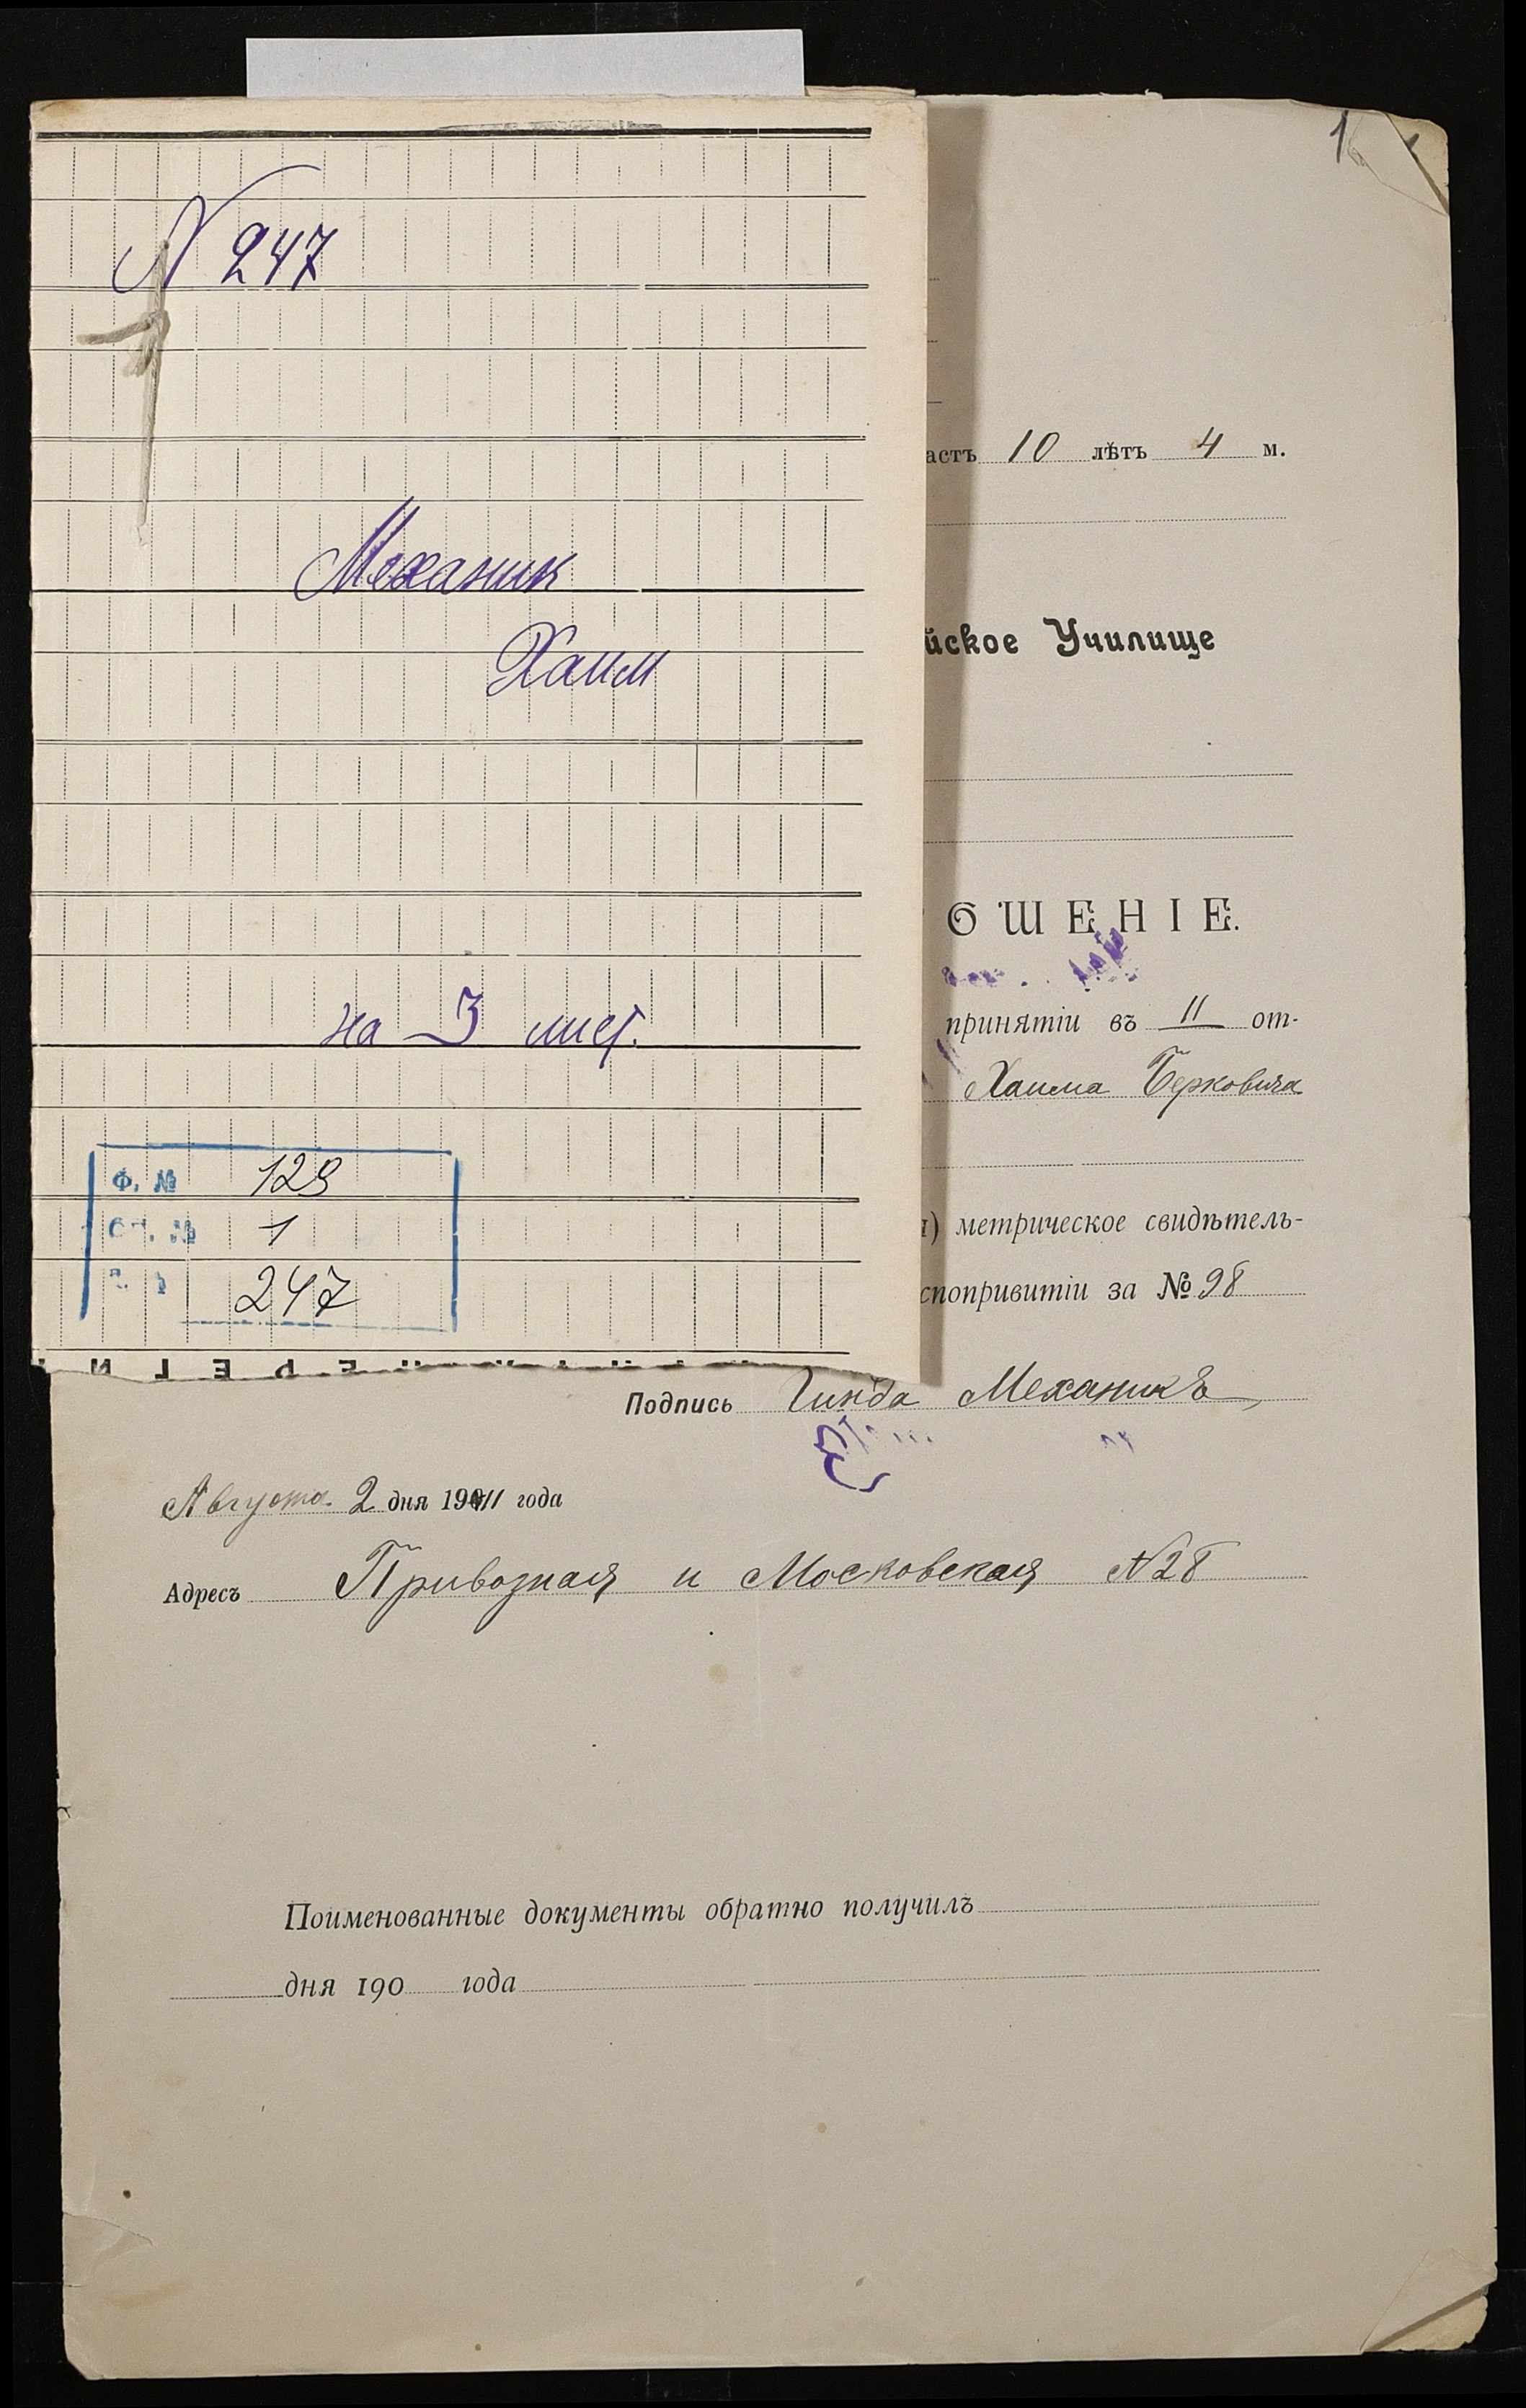 N 247
Механик
Хаим
на 3 лист.
Ф. № 129
Оп. № 1
247
1
астъ 10 лѣтъ 4 м.
йское Училище
ОШЕНІЕ.
принятіи въ II от-
Хаима Берковича
) метрическое свидѣтель-
спопривитіи за № 98
Подпись Гинда Механикъ
Августа 2 дня 1911 года
Адресъ Привозная и Московская N28
Поименованные документы обратно получилъ
дня 190 года